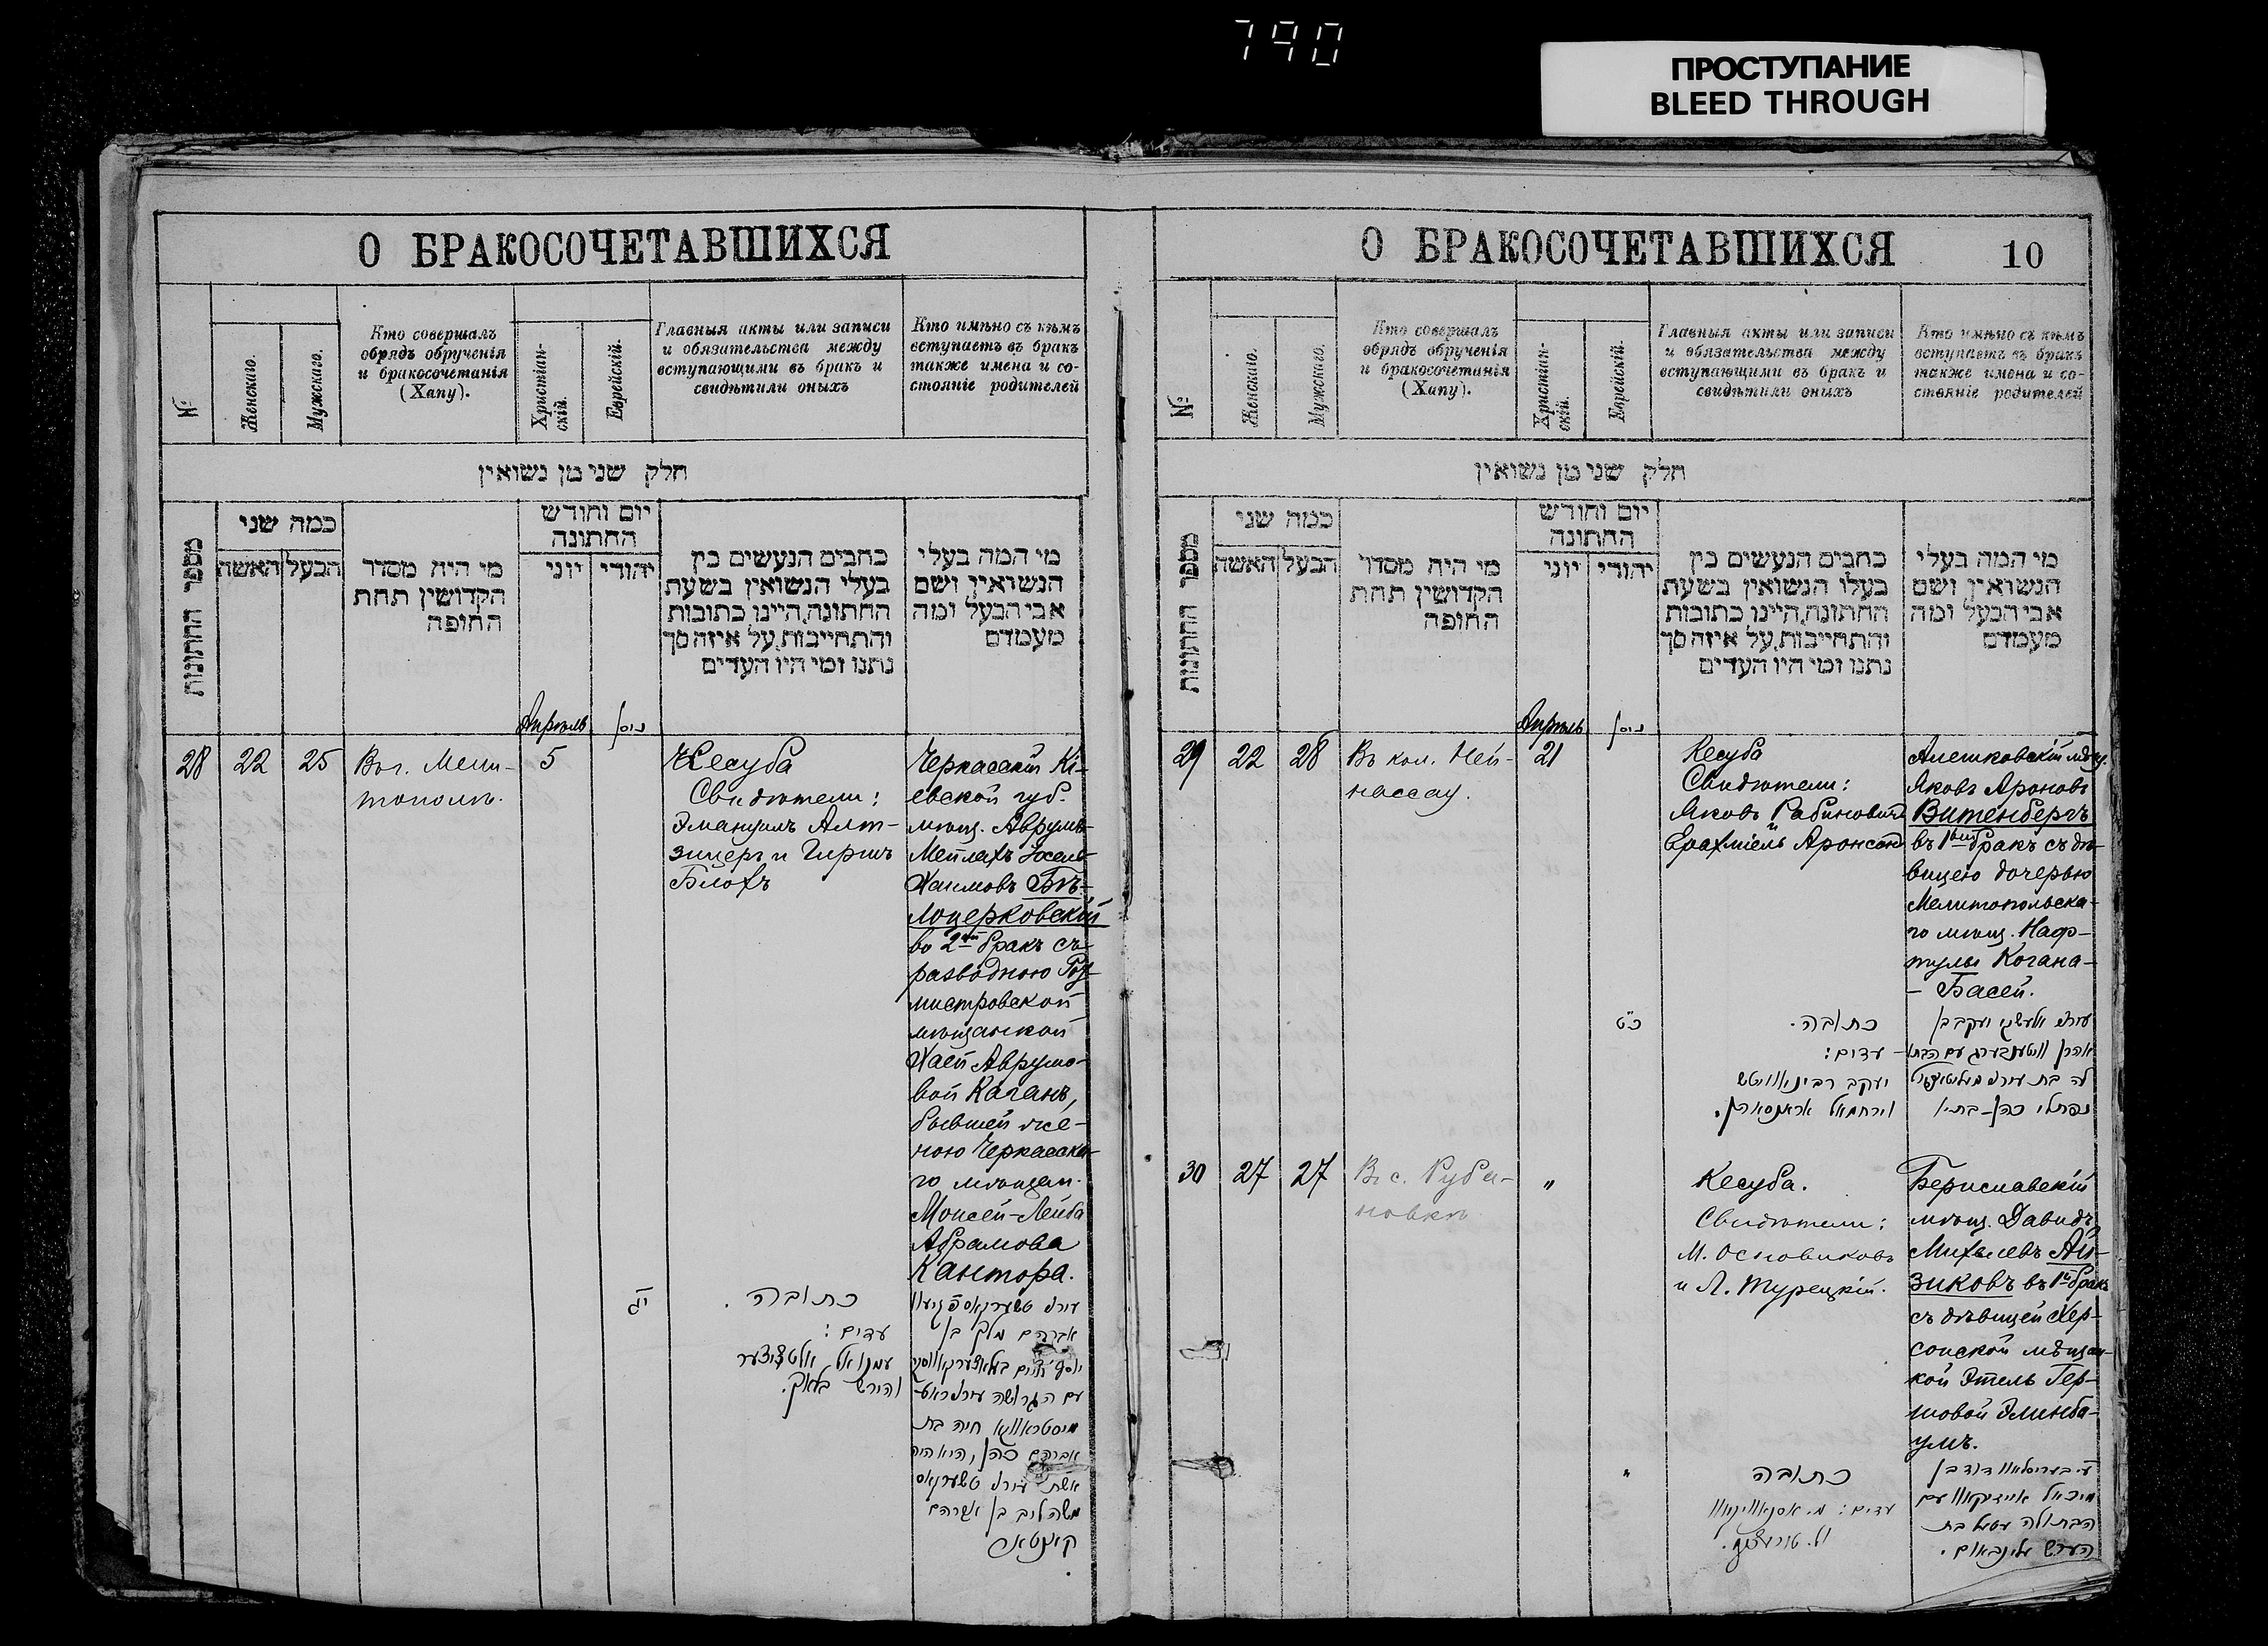 790
ПРОСТУПАНИЕ
BLEED THROUGH
О БРАКОСОЧЕТАВШИХСЯ
№
Женскаго.
Мужскаго.
Кто совершалъ
обрядъ обрученія
и бракосочетанія
(Хапу).
Христіан-
скій.
Еврейскій.
Главныя акты или записи
и обязательства между
вступающими въ бракъ и
свидѣтили оныхъ
Кто имѣно съ кѣмъ
вступаетъ въ бракъ
также имена и со-
стояніе родителей
חלק שני מן נשואין
מספר החתונות
כמה שני
האשה
הבעל
מי היה מסדר
הקדושין תחת
החופה
יום וחודש
החתונה
יוני
יהודי
כתבים הנעשים בין
בעלי הנשואין בשעת
החתונה,היינו כתובות
והתחייבות,על איזה סך
נתנו ומי היו העדים
מי המה בעלי
הנשואין ושם
אבי הבעל ומה
מעמדם
Апрѣль
ניסן
28
22
25
Въ г. Мели-
тополѣ.
5
Кесуба
Свидѣтели:
Эмануилъ Альт-
зицеръ и Гиршъ
Блохъ
Черкасскій Кі-
евской губ.
мѣщ. Аврумъ-
Мейлахъ
Хаимовъ Бѣ-
лоцерковскій
во 2й бракъ съ
разводною
мистровской
мѣщанкой
Хаей Аврумо-
вой Каганъ,
бывшей же-
ною Черкасска-
го мѣщан.
Моисей-Лейба
Абрамова
Кантора.
י״ג
כתובה.
עדים:
עמנואל אלטזיצער
והירש בלאך.
אברהם מלך בן
עם הגרושה
חיה בת
אברהם כהן, היא היתה
אשת
משה ליב בן אברהם
קאנטאר
О БРАКОСОЧЕТАВШИХСЯ
10
№
Женскаго.
Мужскаго.
Кто совершалъ
обрядъ обрученія
и бракосочетанія
(Хапу).
Христіан-
скій.
Еврейскій.
Главныя акты или записи
и обязательства между
вступающими въ бракъ и
свидѣтили оныхъ
Кто имѣно съ кѣмъ
вступаетъ въ бракъ
также имена и со-
стояніе родителей
חלק שני מן נשואין
מספר החתונות
כמה שני
האשה
הבעל
מי היה מסדר
הקדושין תחת
החופה
יום וחודש
החתונה
יוני
יהודי
כתבים הנעשים בין
בעלו הנשואין בשעת
החתונה,היינו כתובות
והתחייבות,על איזה סך
נתנו ומי היו העדים
מי המה בעלי
הנשואין ושם
אבי הבעל ומה
מעמדם
Апрѣль
ניסן
29
22
28
Въ кол. Ней-
нассау.
21
Кесуба
Свидѣтели:
Яковъ Рабиновичъ
и
Ерахміель Аронсонъ
Алешковскій мѣщ.
Яковъ Ароновъ
Витенбергъ
въ 1вый бракъ съ дѣ-
вицею дочерью
Мелитопольска-
го мѣщ. Наф-
тулы Когана-
- Басей.
כ״ט
כתובה.
עדים:
יעקב רבינאוויטש
וירחמאל אראנסאהן.
יעקב בן
אהרן וויטענבערג עם הבתו-
לה בת
נפתלי כהן - בתי׳
30
27
27
Въ с. Руба-
новкѣ
〃
Кесуба.
Свидѣтели:
М. Основиковъ
и Л. Турецкій.
Бериславскій
мѣщ. Давидъ
Михелевъ Ай-
зиковъ въ 1й бракъ
съ дѣвицей Хер-
сонской мѣщан-
кой Этель Гер-
шовой Элинба-
умъ.
〃
כתובה
עדים: מ. אסנאוויקאוו
ול. טורעצקי.
דוד בן
מיכאל אייזיקאוו עם
הבתולה עטיל בת
הערש עלינבאום.